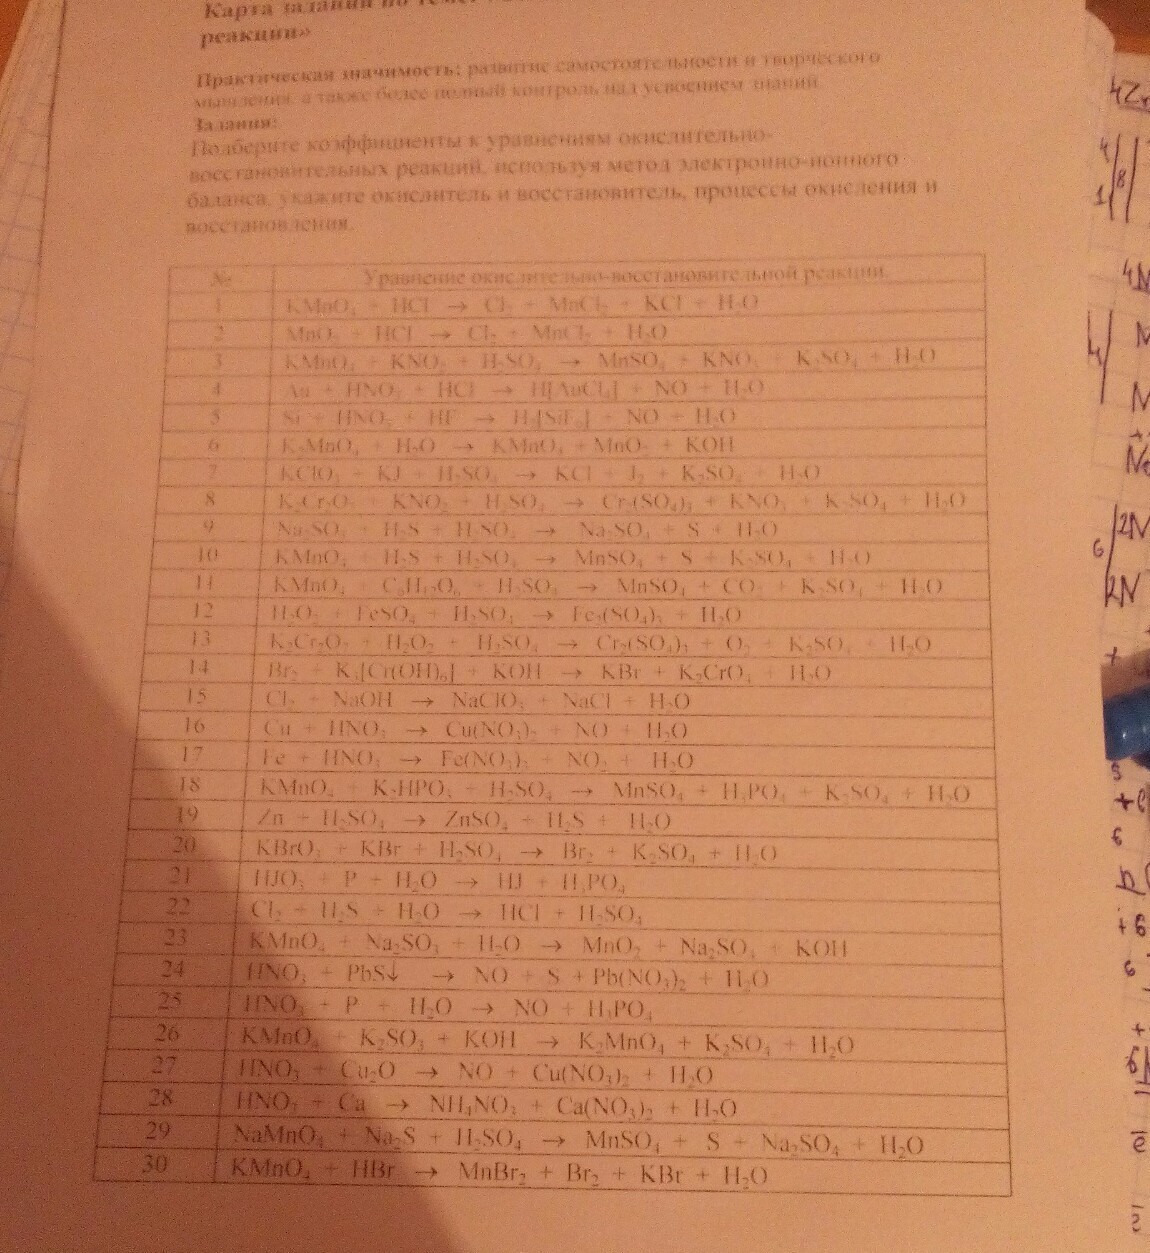 Карта заданий по теме:
реакции»
Практическая значимость: развитие самостоятельности и творческого
мышления, а также более полный контроль над усвоением знаний.
Задания:
Подберите коэффициенты к уравнениям окислительно-
восстановительных реакций, используя метод электронно-ионного
баланса, укажите окислитель и восстановитель, процессы окисления и
восстановления.
№ Уравнение окислительно-восстановительной реакции.
1 KMnO₄ + HCl → Cl₂ + MnCl₂ + KCl + H₂O
2 MnO₂ + HCl → Cl₂ + MnCl₂ + H₂O
3 KMnO₄ + KNO₂ + H₂SO₄ → MnSO₄ + KNO₃ + K₂SO₄ + H₂O
4 Au + HNO₃ + HCl → H[AuCl₄] + NO + H₂O
5 Si + HNO₃ + HF → H₂[SiF₆] + NO + H₂O
6 K₂MnO₄ + H₂O → KMnO₄ + MnO₂ + KOH
7 KClO₃ + KJ + H₂SO₄ → KCl + J₂ + K₂SO₄ + H₂O
8 K₂Cr₂O₇ + KNO₂ + H₂SO₄ → Cr₂(SO₄)₃ + KNO₃ + K₂SO₄ + H₂O
9 Na₂SO₃ + H₂S + H₂SO₄ → Na₂SO₄ + S + H₂O
10 KMnO₄ + H₂S + H₂SO₄ → MnSO₄ + S + K₂SO₄ + H₂O
11 KMnO₄ + C₆H₁₂O₆ + H₂SO₄ → MnSO₄ + CO₂ + K₂SO₄ + H₂O
12 H₂O₂ + FeSO₄ + H₂SO₄ → Fe₂(SO₄)₃ + H₂O
13 K₂Cr₂O₇ + H₂O₂ + H₂SO₄ → Cr₂(SO₄)₃ + O₂ + K₂SO₄ + H₂O
14 Br₂ + K₃[Cr(OH)₆] + KOH → KBr + K₂CrO₄ + H₂O
15 Cl₂ + NaOH → NaClO₃ + NaCl + H₂O
16 Cu + HNO₃ → Cu(NO₃)₂ + NO + H₂O
17 Fe + HNO₃ → Fe(NO₃)₃ + NO₂ + H₂O
18 KMnO₄ + K₂HPO₃ + H₂SO₄ → MnSO₄ + H₃PO₄ + K₂SO₄ + H₂O
19 Zn + H₂SO₄ → ZnSO₄ + H₂S + H₂O
20 KBrO₃ + KBr + H₂SO₄ → Br₂ + K₂SO₄ + H₂O
21 HJO₃ + P + H₂O → HJ + H₃PO₄
22 Cl₂ + H₂S + H₂O → HCl + H₂SO₄
23 KMnO₄ + Na₂SO₃ + H₂O → MnO₂ + Na₂SO₄ + KOH
24 HNO₃ + PbS↓ → NO + S + Pb(NO₃)₂ + H₂O
25 HNO₃ + P + H₂O → NO + H₃PO₄
26 KMnO₄ + K₂SO₃ + KOH → K₂MnO₄ + K₂SO₄ + H₂O
27 HNO₃ + Cu₂O → NO + Cu(NO₃)₂ + H₂O
28 HNO₃ + Ca → NH₄NO₃ + Ca(NO₃)₂ + H₂O
29 NaMnO₄ + Na₂S + H₂SO₄ → MnSO₄ + S + Na₂SO₄ + H₂O
30 KMnO₄ + HBr → MnBr₂ + Br₂ + KBr + H₂O